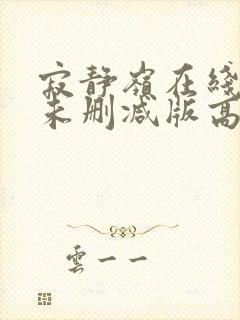 寂静嶺在綫
未删减版高
雲一一